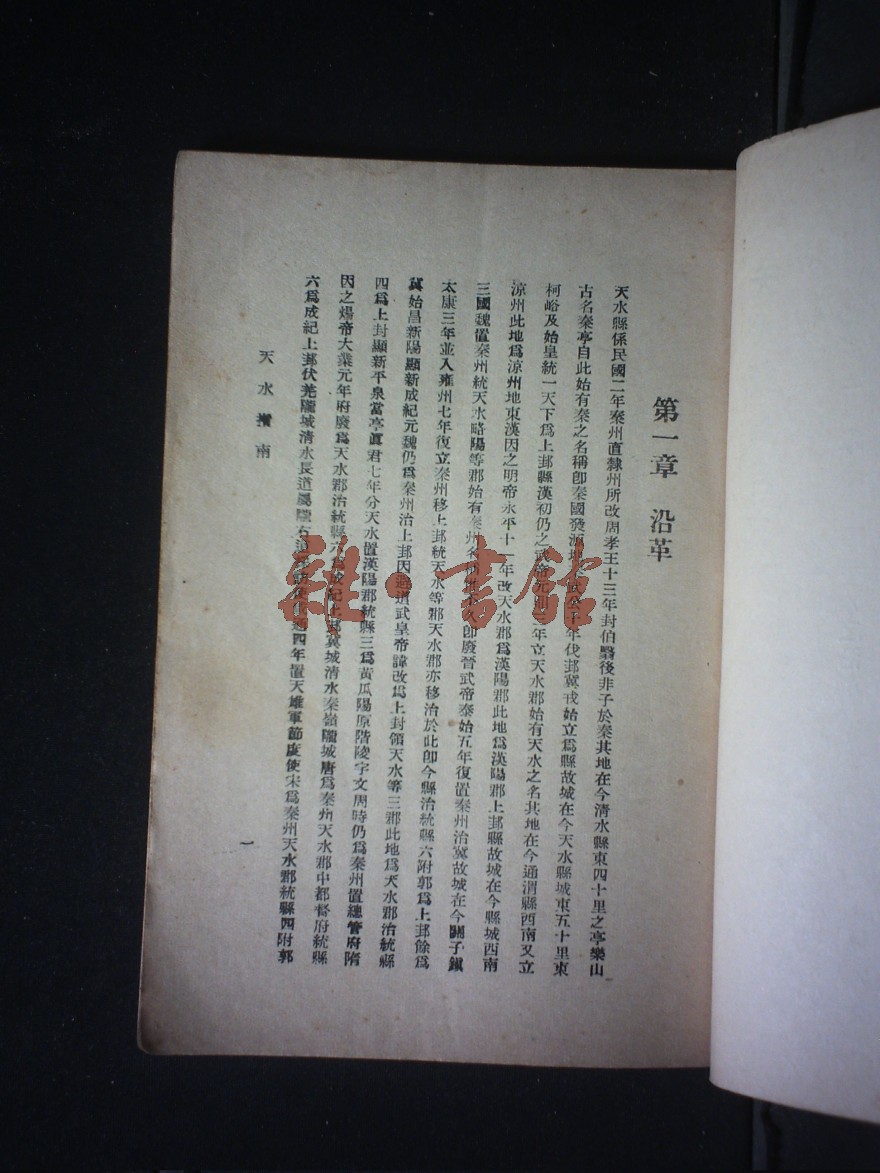 第一章 沿革
天水縣係民國二年秦州直隸州所改周孝王十三年封伯翳後非子於秦其地在今清水縣東四十里之亭樂山
古名秦亭自此始有秦之名稱卽秦國發源地武公十年伐邽冀戎始立爲縣故城在今天水縣城東五十里東
柯峪及始皇統一天下爲上邽縣漢初仍之武帝元鼎三年立天水郡始有天水之名其地在今通渭縣西南又立
涼州此地爲涼州地東漢因之明帝永平十一年改天水郡爲漢陽郡此地爲漢陽郡上邽縣故城在今縣城西南
三國魏置秦州統天水略陽等郡始有秦州名稱久卽廢晉武帝泰始五年復置秦州治冀故城在今關子鎭
太康三年並入雍州七年復立秦州移上邽統天水等郡天水郡亦移治於此卽今縣治統縣六附郭爲上邽餘爲
冀始昌新陽顯新成紀元魏仍爲秦州治上邽因避道武皇帝諱改爲上封領天水等三郡此地爲天水郡治統縣
四爲上封顯新平泉當亭眞君七年分天水置漢陽郡統縣三爲黃瓜陽原階陵宇文周時仍爲秦州置總管府隋
因之煬帝大業元年府廢爲天水郡治統縣六爲成紀上邽冀城清水秦嶺隴城唐爲秦州天水郡中都督府統縣
六爲成紀上邽伏羌隴城清水長道屬隴右道四年置天雄軍節度使宋爲秦州天水郡統縣四附郭
天水指南
一
雜·書館